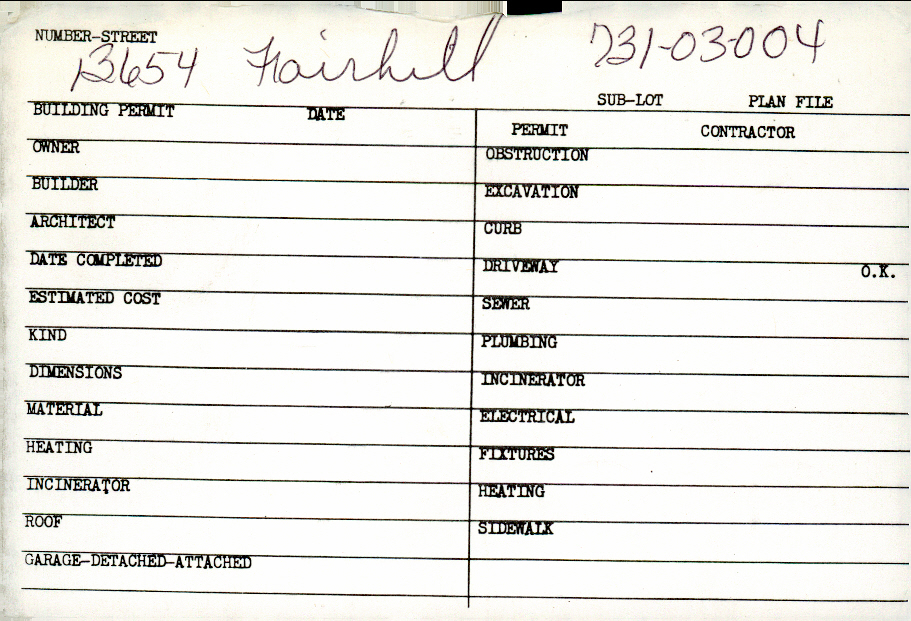 NUMBER-STREET
13654 Fairhill 731-03-004
SUB-LOT PLAN FILE
BUILDING PERMIT DATE
PERMIT CONTRACTOR
OWNER
OBSTRUCTION
BUILDER
EXCAVATION
ARCHITECT
CURB
DATE COMPLETED
DRIVEWAY O.K.
ESTIMATED COST
SEWER
KIND
PLUMBING
DIMENSIONS
INCINERATOR
MATERIAL
ELECTRICAL
HEATING
FIXTURES
INCINERATOR
HEATING
ROOF
SIDEWALK
GARAGE-DETACHED-ATTACHED